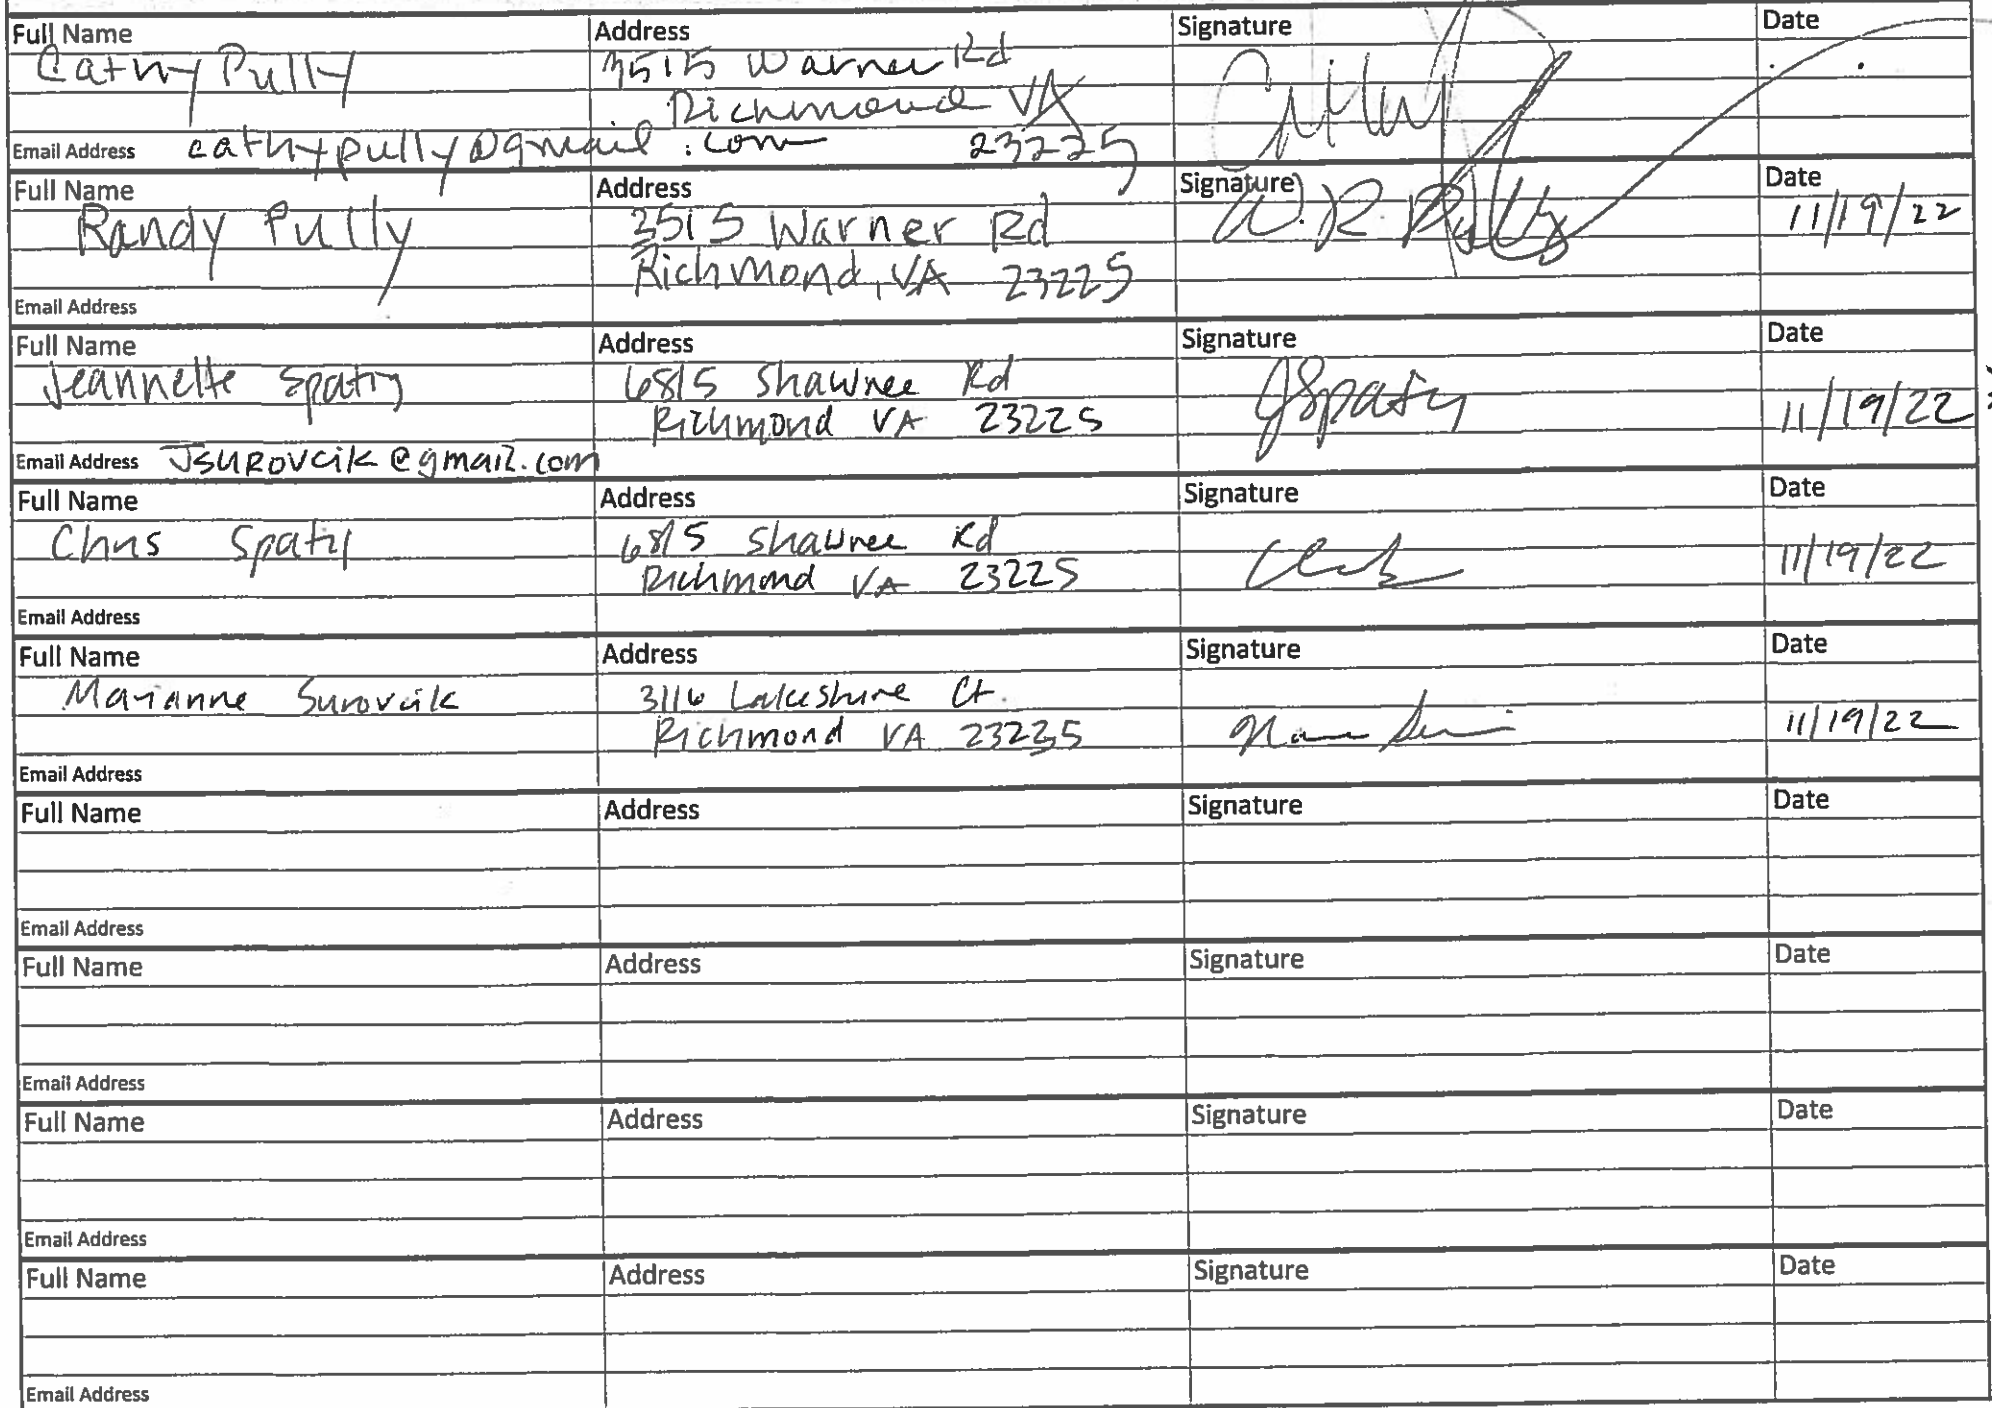 Full Name Address Signature Date
Cathy Pully 3515 Warner Rd
Richmond VA
Email Address cathypully@gmail.com 23225
Full Name Address Signature Date
Randy Pully 3515 Warner Rd W. R. Pully 11/19/22
Richmond, VA 23225
Email Address
Full Name Address Signature Date
Jeannette Spaty 6815 Shawnee Rd JSpaty 11/19/22
Richmond VA 23225
Email Address Jsurovcik@gmail.com
Full Name Address Signature Date
Chris Spaty 6815 Shawnee Rd 11/19/22
Richmond VA 23225
Email Address
Full Name Address Signature Date
Marianne Surovcik 3116 Lakeshire Ct. 11/19/22
Richmond VA 23235
Email Address
Full Name Address Signature Date
Email Address
Full Name Address Signature Date
Email Address
Full Name Address Signature Date
Email Address
Full Name Address Signature Date
Email Address